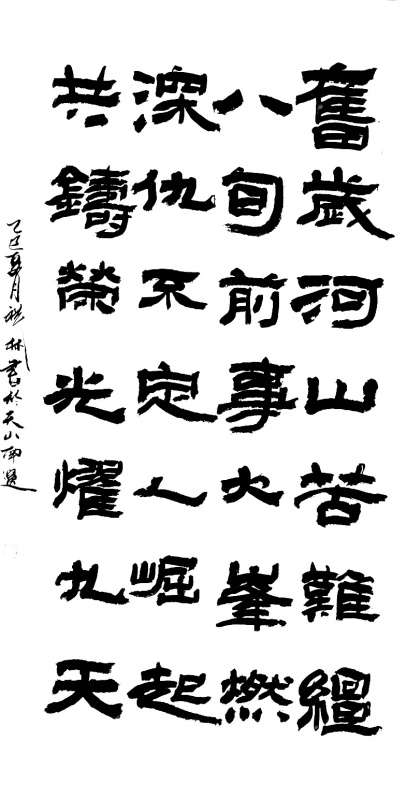 舊歲河山苦難纏
八旬前事火峯燃
深仇不定人崛起
共鑄榮光耀九天
乙巳夏月林書於天山南